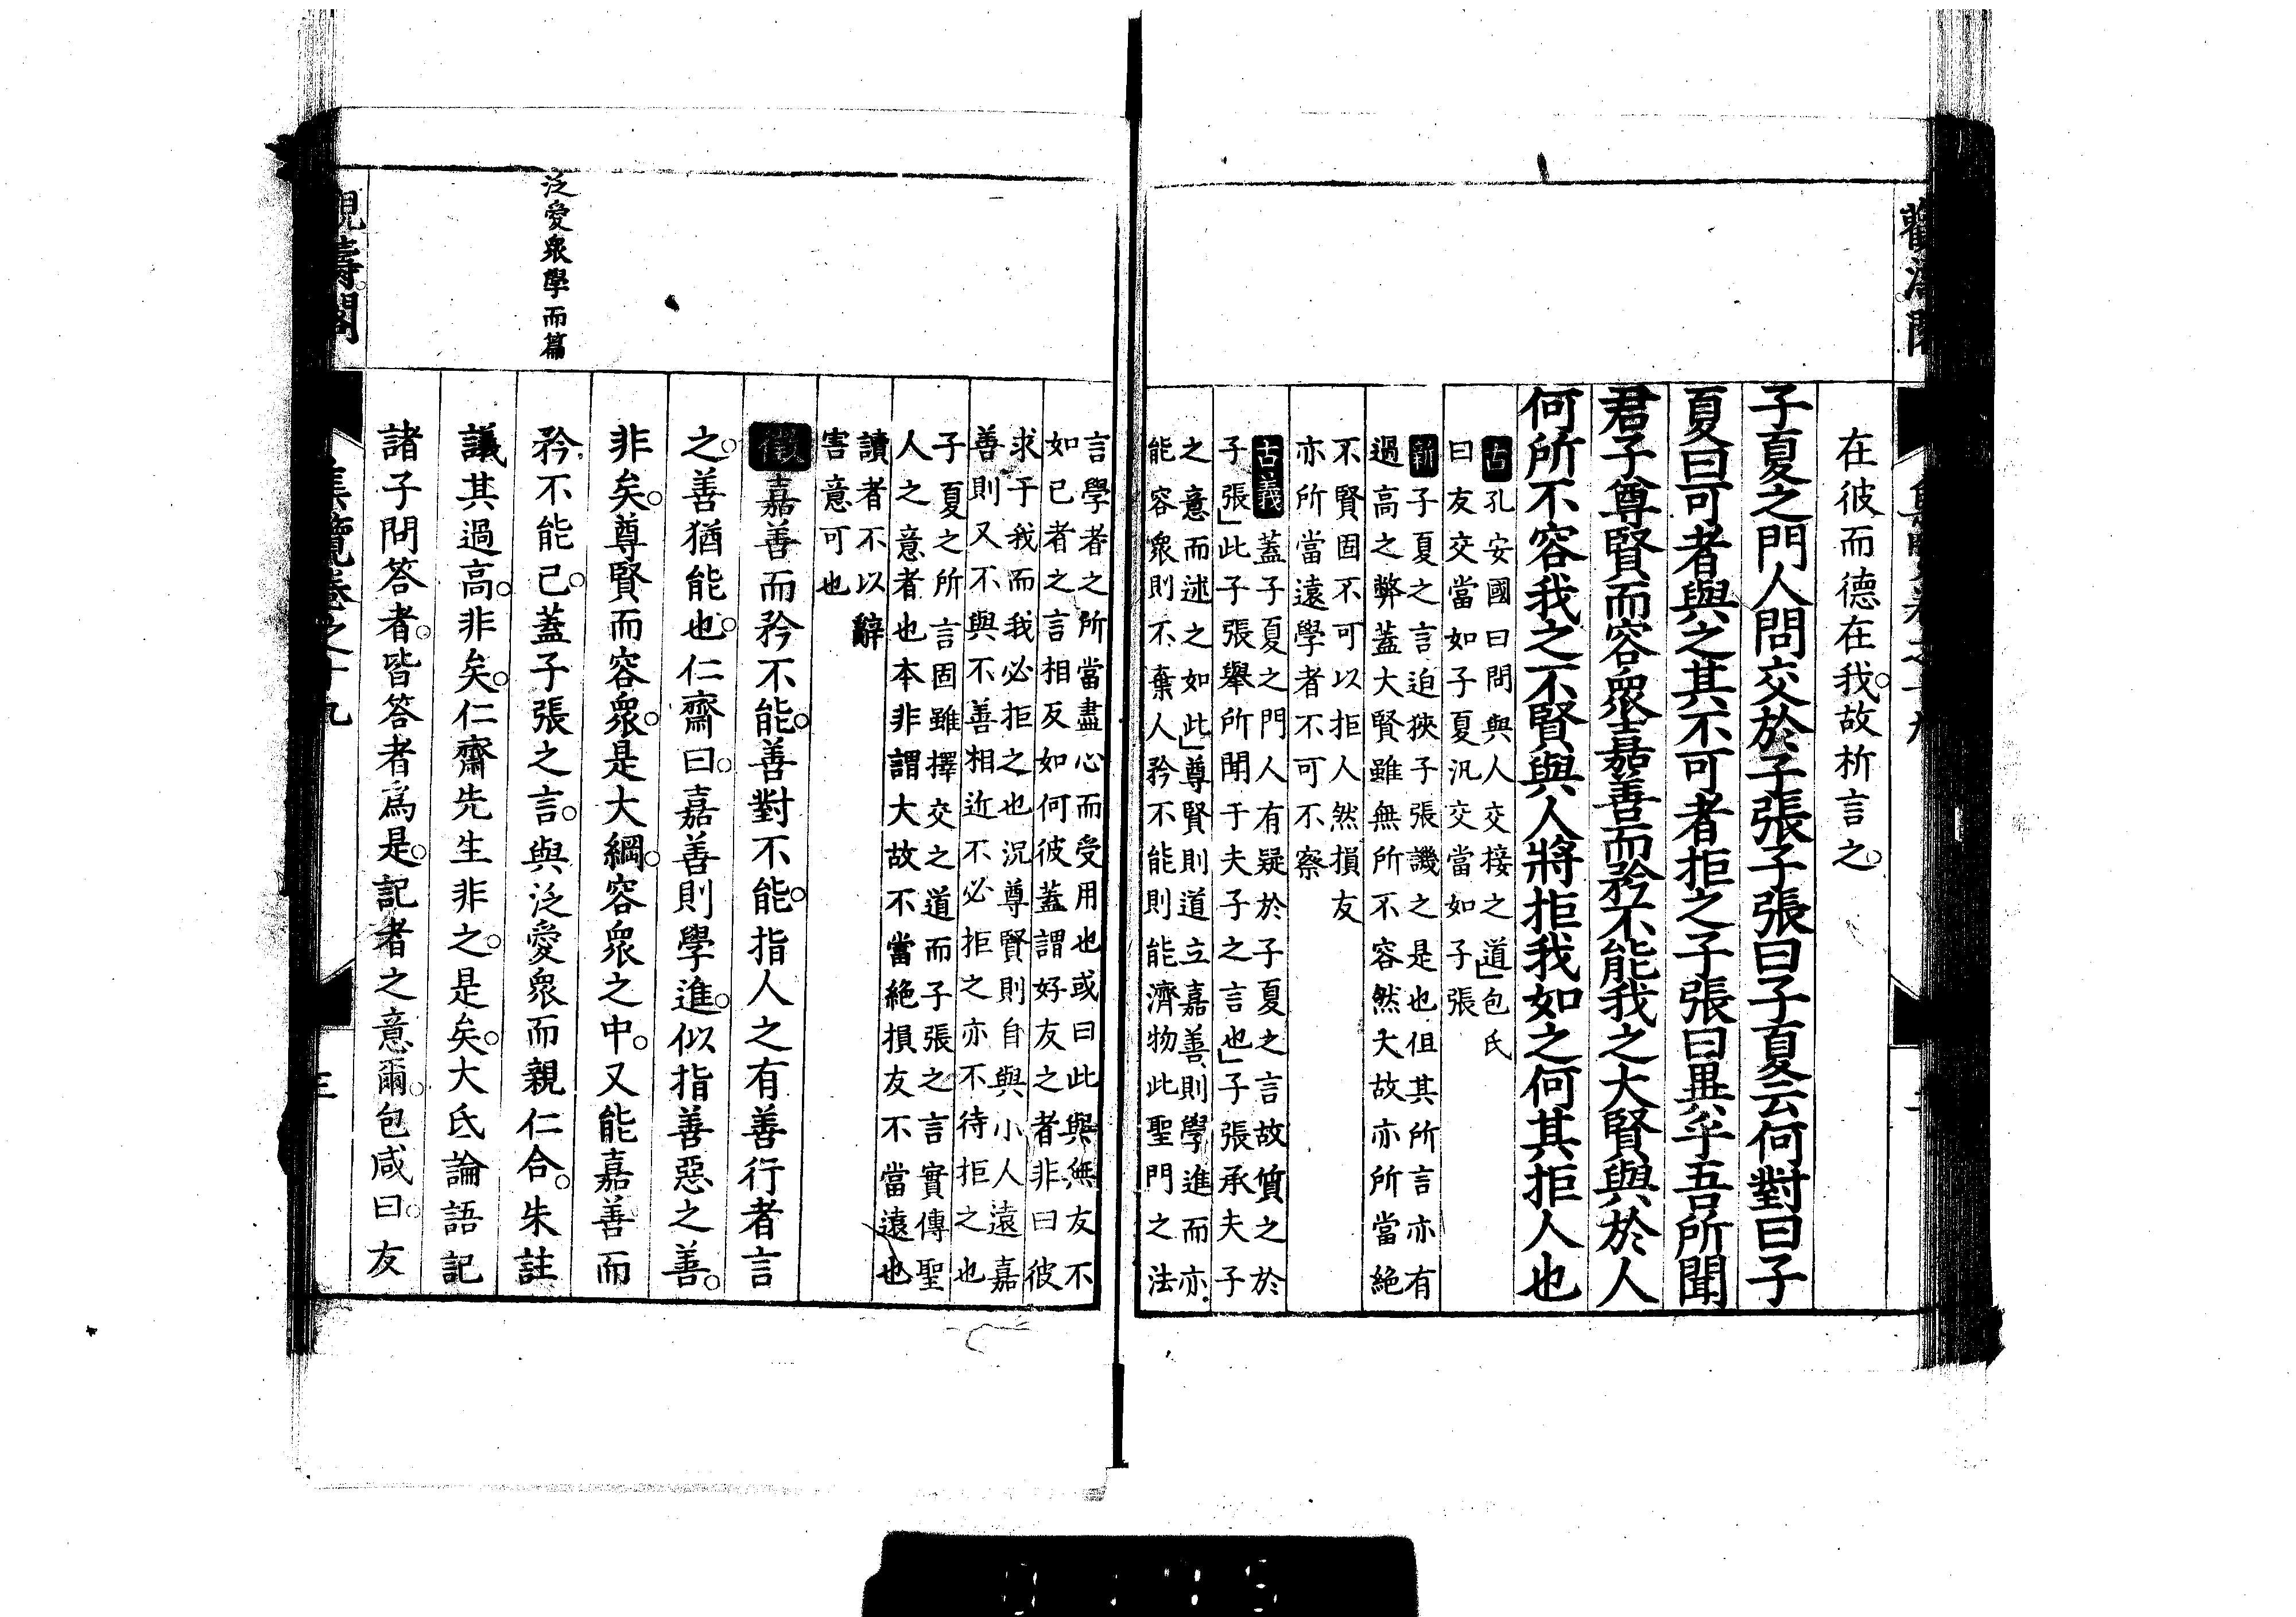 在彼而德在我故析言之
子夏之門人問交於子張子張曰子夏云何對曰子
夏曰可者與之其不可者拒之子張曰異乎吾所聞
君子尊賢而容衆嘉善而矜不能我之大賢與於人
何所不容我之不賢與人將拒我如之何其拒人也
古孔安國曰問與人交接之道」包氏
曰友交當如子夏汎交當如子張
新子夏之言迫狹子張譏之是也但其所言亦有
過高之弊蓋大賢雖無所不容然大故亦所當絕
不賢固不可以拒人然損友
亦所當遠學者不可不察
古義蓋子夏之門人有疑於子夏之言故質之於
子張」此子張舉所聞于夫子之言也」子張承夫子
之意而述之如此」尊賢則道立嘉善則學進而亦
能容衆則不棄人矜不能則能濟物此聖門之法
言學者之所當盡心而受用也或曰此與無友不
如己者之言相反如何彼蓋謂好友之者非曰彼
求于我而我必拒之也況尊賢則自與小人遠嘉
善則又不與不善相近不必拒之亦不待拒之也
子夏之所言固雖擇交之道而子張之言實傳聖
人之意者也本非謂大故不當絕損友不當遠也
讀者不以辭
害意可也
泛愛衆學而篇
徵嘉善而矜不能善對不能指人之有善行者言
之善猶能也仁齋曰嘉善則學進似指善惡之善
非矣尊賢而容衆是大綱容衆之中又能嘉善而
矜不能己蓋子張之言與泛愛衆而親仁合朱註
議其過高非矣仁齋先生非之是矣大氐論語記
諸子問答者皆答者爲是記者之意爾包咸曰友
集覽卷之十九
三